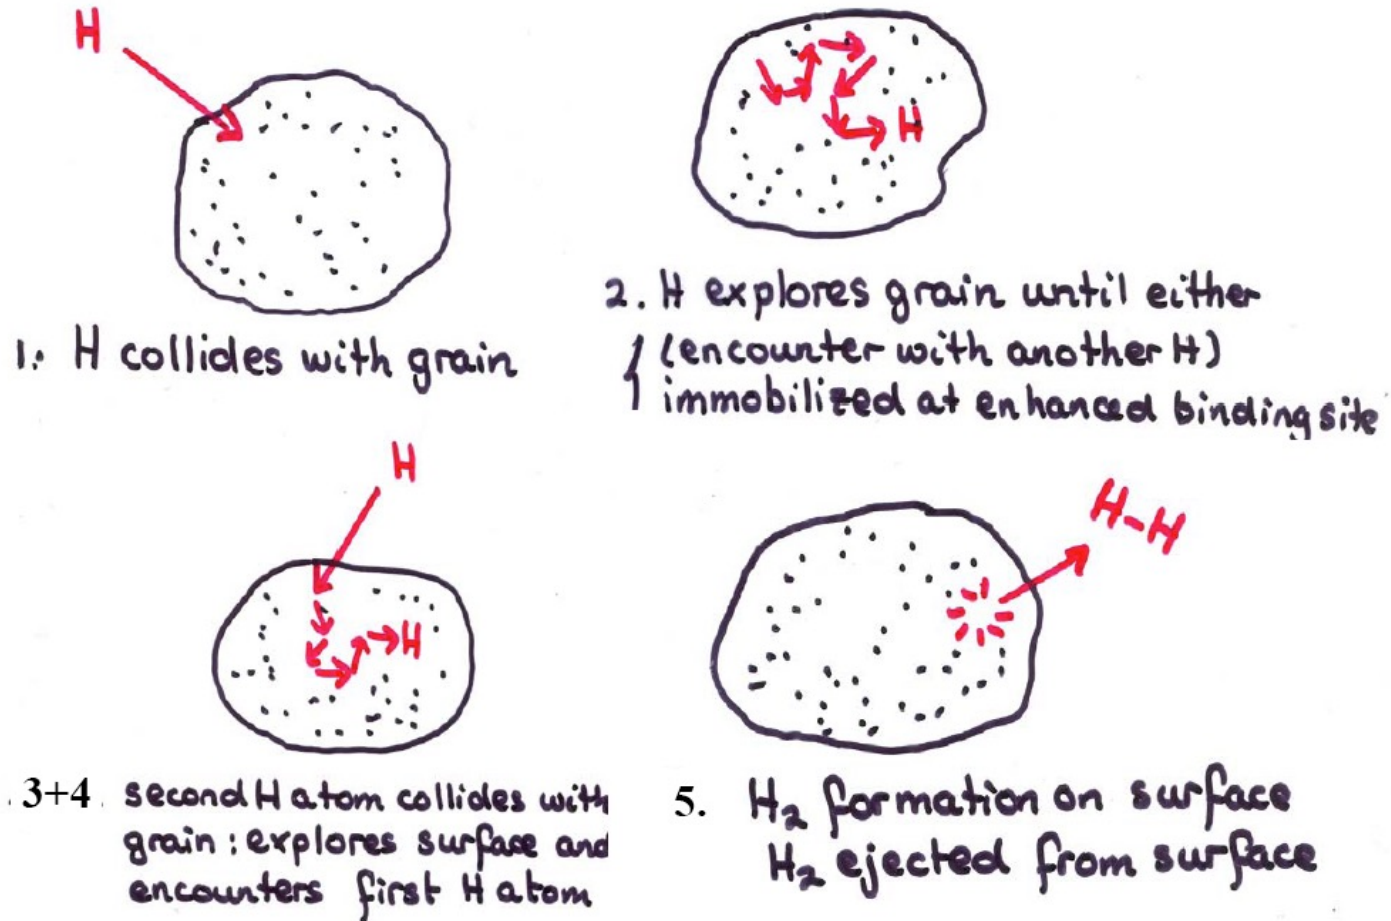 H
1. H collides with grain
H
2. H explores grain until either
(encounter with another H)
immobilized at enhanced binding site
H
H
3+4. second H atom collides with
grain: explores surface and
encounters first H atom
H-H
5. H₂ formation on surface
H₂ ejected from surface